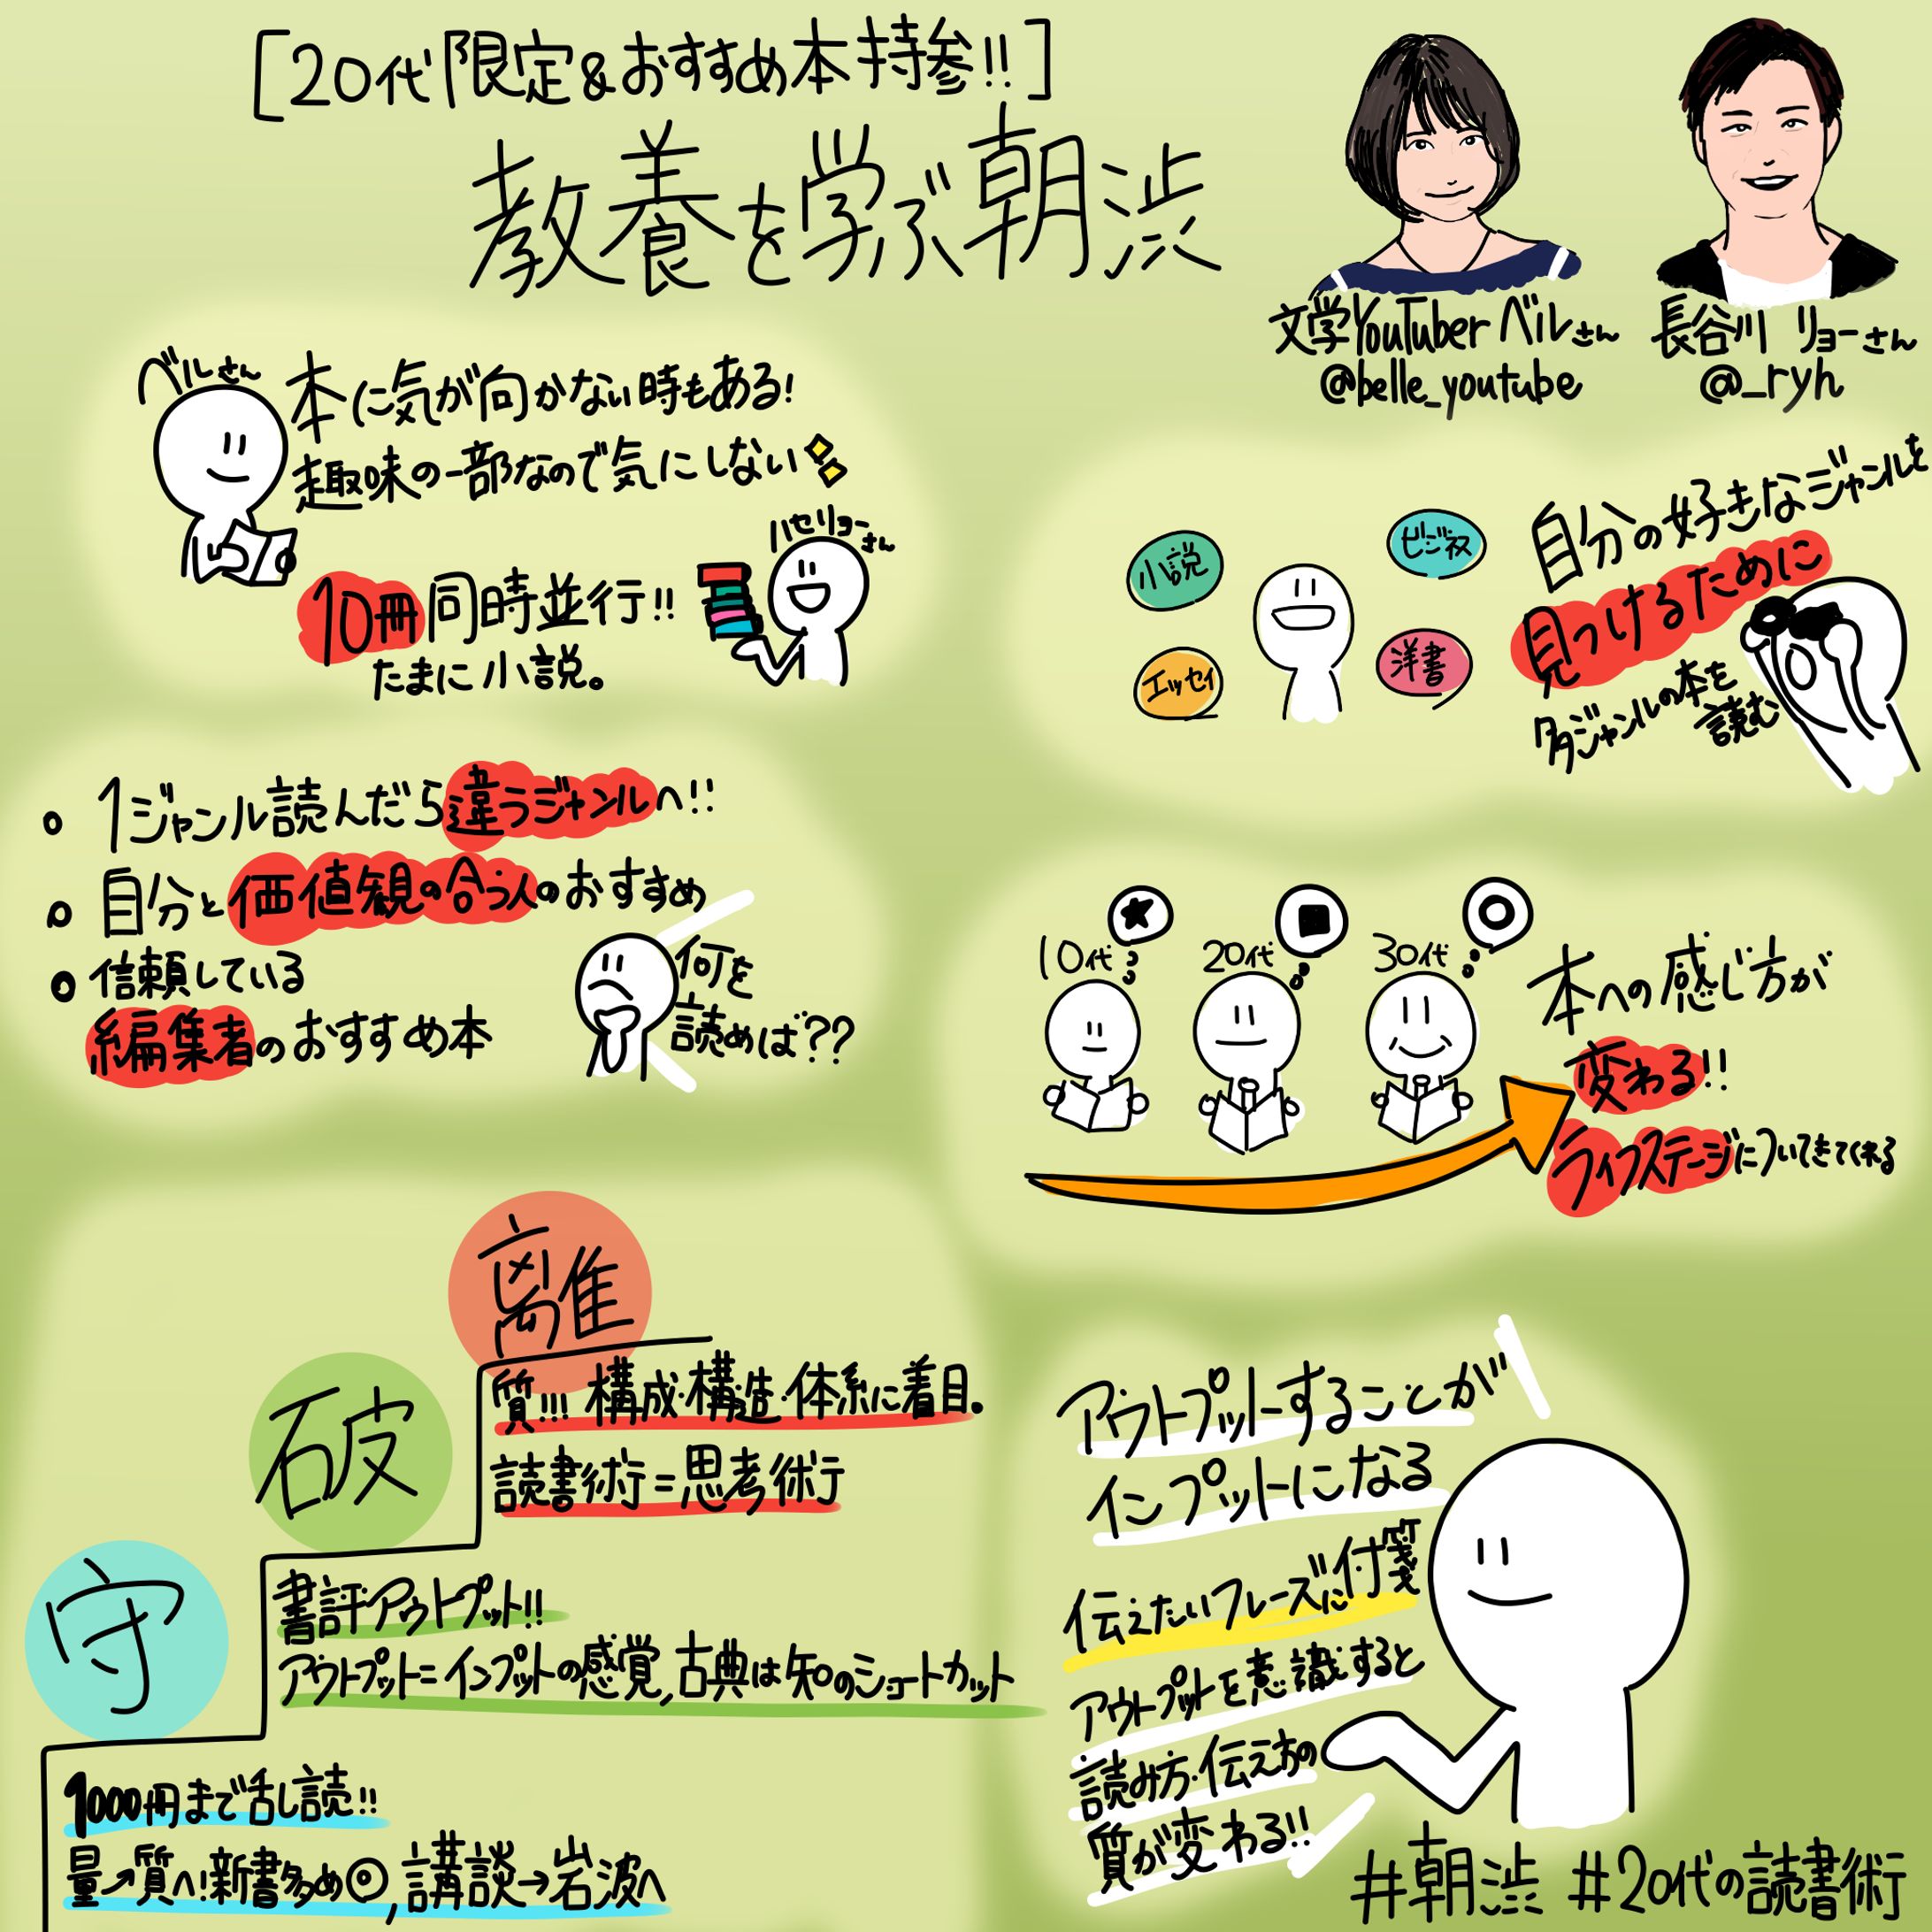 [20代限定&おすすめ本持参!!]
教養を学ぶ朝渋
文学YouTuber ベルさん
@belle_youtube
長谷川 リョーさん
@_ryh
ベルさん
本に気が向かない時もある!
趣味の一部なので気にしない
ハセリョーさん
10冊同時並行!!
たまに小説。
小説
ビジネス
エッセイ
洋書
自分の好きなジャンルを
見つけるために
多ジャンルの本を
読む
1ジャンル読んだら違うジャンルへ!!
自分と価値観の合う人のおすすめ
信頼している
編集者のおすすめ本
何を
読めば??
10代
20代
30代
本への感じ方が
変わる!!
ライフステージについてきてくれる
離
質!!! 構成・構造・体系に着目。
読書術=思考術
破
書評・アウトプット!!
アウトプット=インプットの感覚,古典は知のショートカット
守
1000冊まで乱読!!
量→質へ!新書多め◎,講談→岩波へ
アウトプットすることが
インプットになる
伝えたいフレーズに付箋
アウトプットを意識すると
読み方・伝え方の
質が変わる!!
#朝渋 #20代の読書術